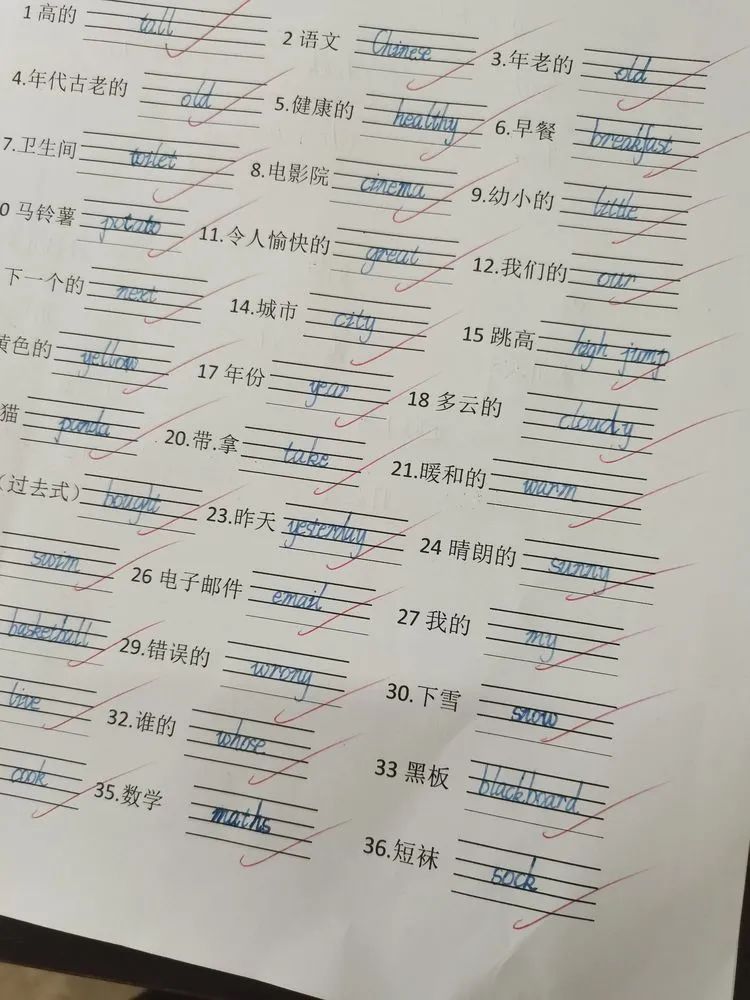 1 高的 tall 2 语文 Chinese 3.年老的 old
4.年代古老的 old 5.健康的 healthy 6.早餐 breakfast
7.卫生间 toilet 8.电影院 cinema 9.幼小的 little
0 马铃薯 potato 11.令人愉快的 great 12.我们的 our
下一个的 next 14.城市 city 15 跳高 high jump
黄色的 yellow 17 年份 year 18 多云的 cloudy
猫 panda 20.带.拿 take 21.暖和的 warm
(过去式) bought 23.昨天 yesterday 24 晴朗的 sunny
swim 26 电子邮件 email 27 我的 my
basketball 29.错误的 wrong 30.下雪 snow
live 32.谁的 whose 33 黑板 blackboard
cook 35.数学 maths 36.短袜 sock